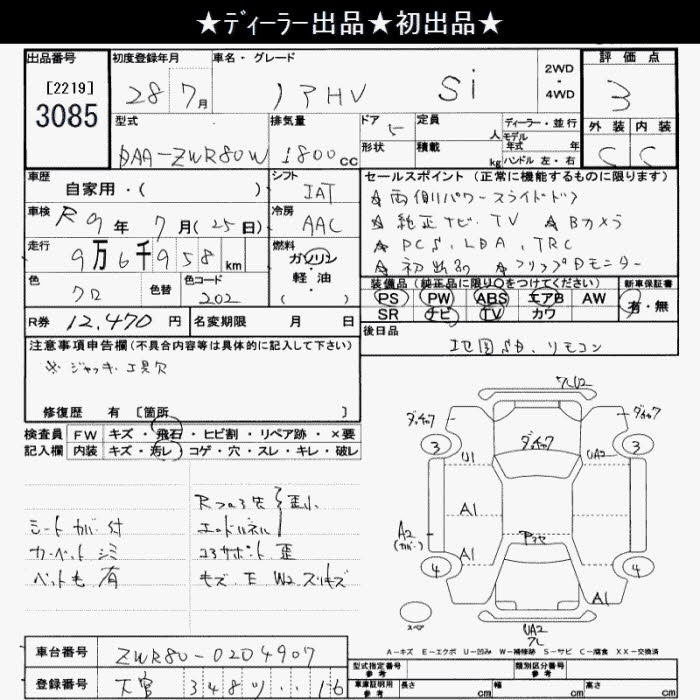 ★ディーラー出品★初出品★
出品番号 初度登録年月 車名・グレード 2WD ・ 4WD 評価点
[2219] 3085 28 7月 ノアHV Si 3
型式 排気量 ドア 5 定員 人 ディーラー・並行 外装 内装
形状 積載 kg モデル年式 年 ハンドル 左・右
DAA-ZWR80W 1800cc C C
車歴 自家用・( ) シフト IAT セールスポイント (正常に機能するものに限ります)
車検 R9年7月(25日) 冷房 AAC
走行 9万6千958km 燃料 ガソリン 軽・油
色 クロ 色替 色コード 202
R券 12,470円 名変期限 月 日
☆両側パワースライドドア
☆純正ナビ.TV ☆Bカメラ
☆PCS.LDA.TRC
☆初出品 ☆フリップDモニター
装備品 (純正品に限り○をつけてください) 新車保証書
PS PW ABS エアB AW 有・無
SR ナビ TV カワ
後日品 リモコン
注意事項申告欄 (不具合内容等は具体的に記入して下さい)
※ジャッキ.工具欠
修復歴 有 [箇所 ]
検査員 FW キズ・飛石・ヒビ割・リペア跡・×要
記入欄 内装 キズ・汚レ・コゲ・穴・スレ・キレ・破レ
シートカバー付
カーペットシミ
有
エンドパネル
コアサポート歪
キズ E W2 スリキズ
フレU2
ダッチフ ダッチフ
ダッチフ
3 3
U1 UA2
A1
A2 (カバー)
A1
4 4
A1
スペア
UA2
フレ
A-キズ E-エクボ U-凹み W-補修跡 S-サビ C-腐食 XX-交換済
車台番号 ZWR80-0204907
登録番号 大宮 348 ツ ‥16
型式指定番号 参考 類別区分番号 参考
車庫証明用 参考 長さ cm 幅 cm 高さ cm